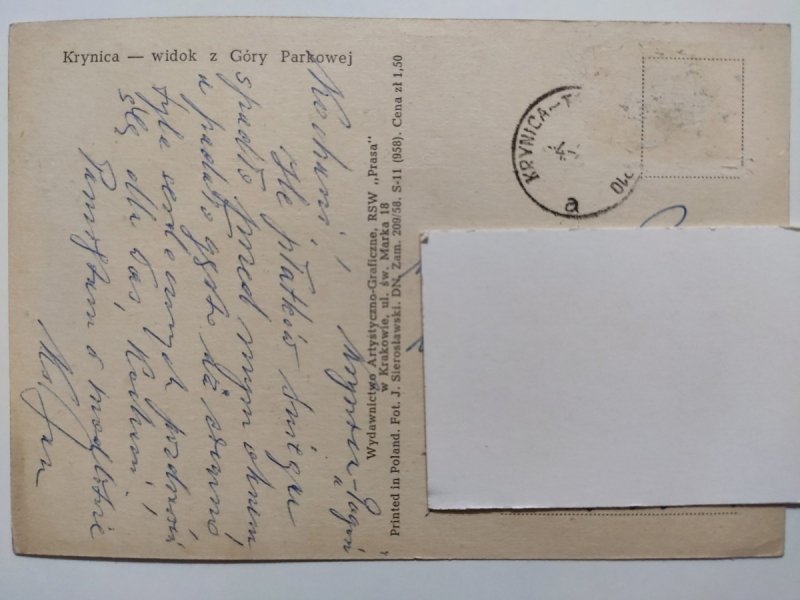 Krynica — widok z Góry Parkowej
Kochani!
Ile płatków śniegu
spadło przed mym oknem,
a pada gęsto aż ciemno
tyle serdecznych pozdrowień
ślę dla Was, Kochani!
Pamiętam o modlitwie
Ks. Jan
Wydawnictwo Artystyczno-Graficzne, RSW „Prasa”
w Krakowie, ul. św. Marka 18
Printed in Poland. Fot. J. Sierosławski. DN. Zam. 209/58. S-11 (958). Cena zł 1,50
KRYNICA
a